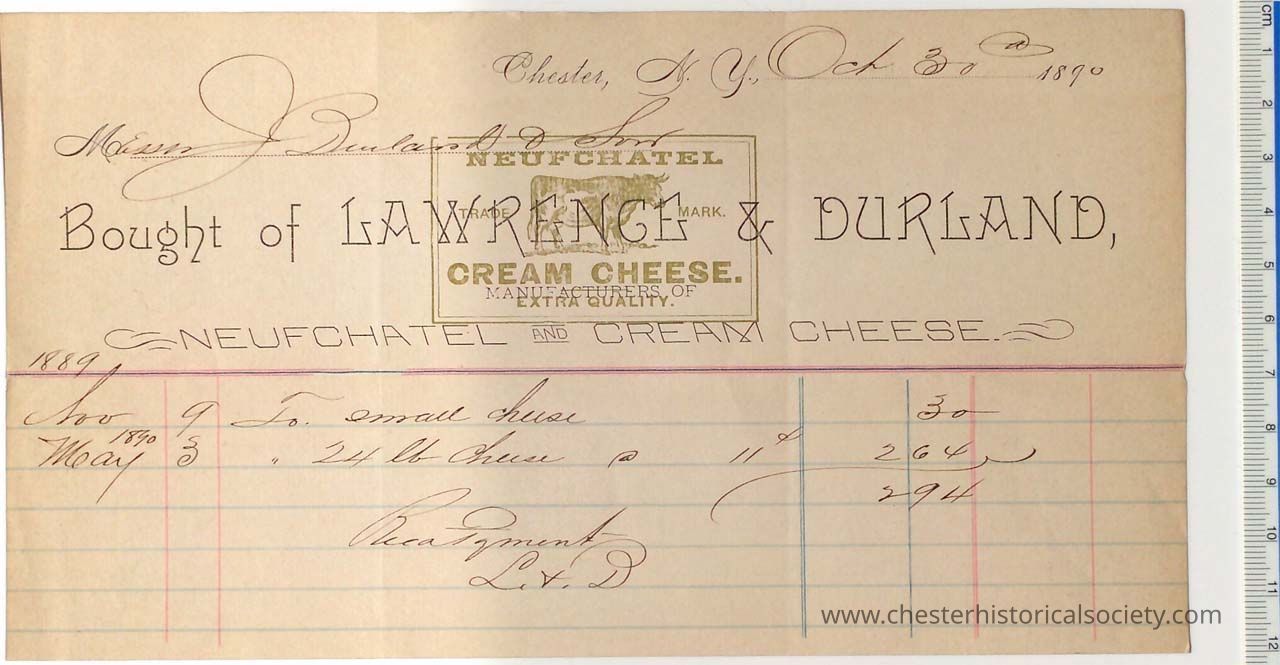 Chester, N. Y., Oct 30 1890
Messrs J Durland & Son
NEUFCHATEL
TRADE MARK.
Bought of LAWRENCE & DURLAND,
CREAM CHEESE.
MANUFACTURERS OF
EXTRA QUALITY.
NEUFCHATEL AND CREAM CHEESE.
1889
Nov 9 To. small cheese 30
1890
May 3 " 24 lb cheese @ 11¢ 2 64
2 94
Recd Payment
L. & D
www.chesterhistoricalsociety.com
cm 1 2 3 4 5 6 7 8 9 10 11 12